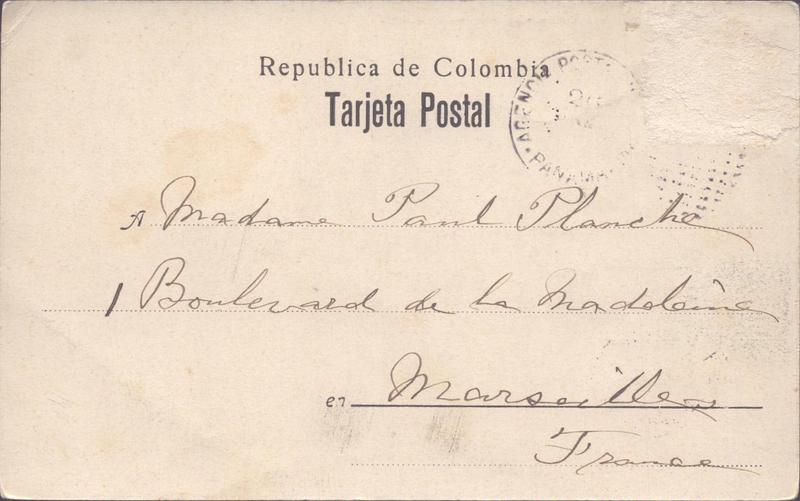 Republica de Colombia
Tarjeta Postal
AGENCIA POSTAL
PANAMA
A Madame Paul Planche
1 Boulevard de la Madeleine
en Marseilles
France